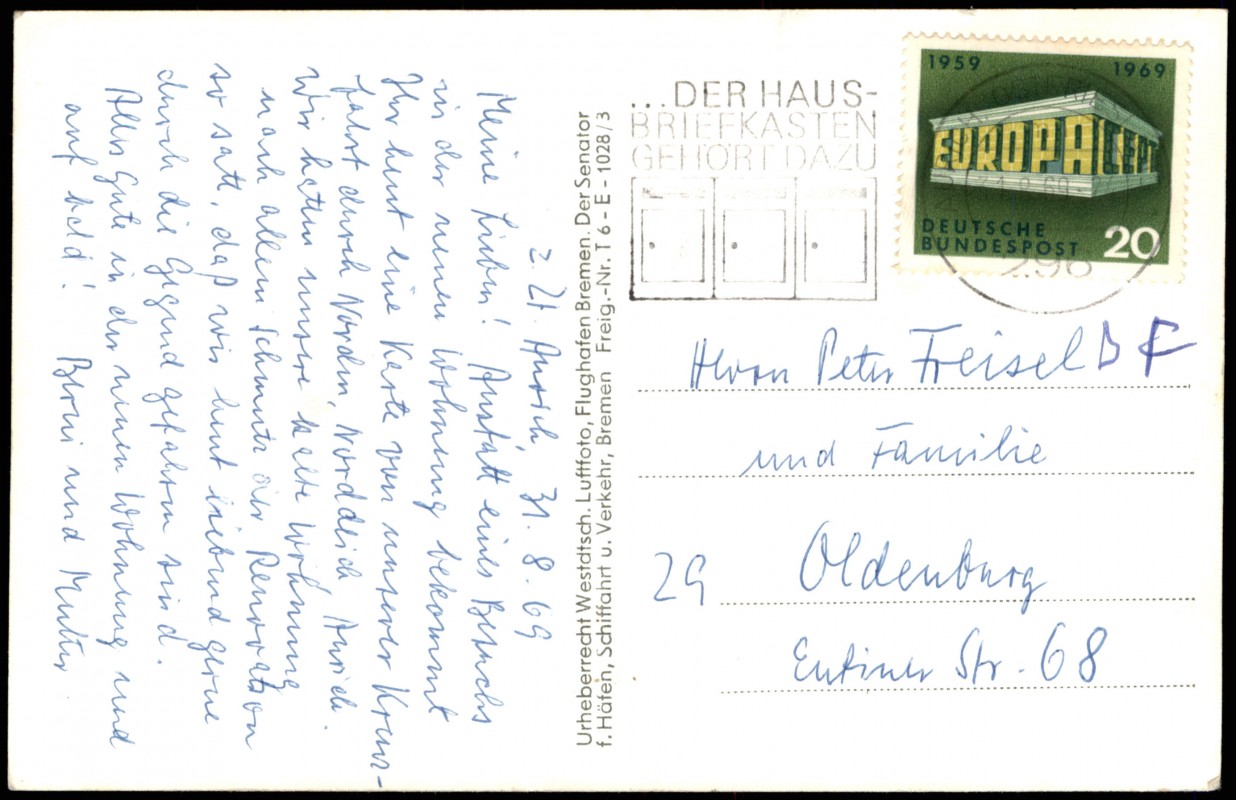 z. Zt. Aurich, 31. 8. 69
Meine Lieben! Anstatt eines Besuchs
in der neuen Wohnung bekommt
Ihr heut eine Karte von unserer Kreuz-
fahrt durch Norden Norddeich Aurich.
Wir hatten unsere alte Wohnung
nach allem Schmutz der Renovation
so satt, daß wir heut liebend gerne
durch die Gegend gefahren sind.
Alles Gute in der neuen Wohnung und
auf bald! und Mutter.
Urheberrecht Westdtsch. Luftfoto, Flughafen Bremen. Der Senator
f. Häfen, Schiffahrt u. Verkehr, Bremen Freig.-Nr. T 6 - E - 1028/3
...DER HAUS-
BRIEFKASTEN
GEHÖRT DAZU
1959 1969
EUROPA CEPT
DEUTSCHE
BUNDESPOST 20
296
Herrn Peter Freisel BF
und Familie
29 Oldenburg
Eutiner Str. 68